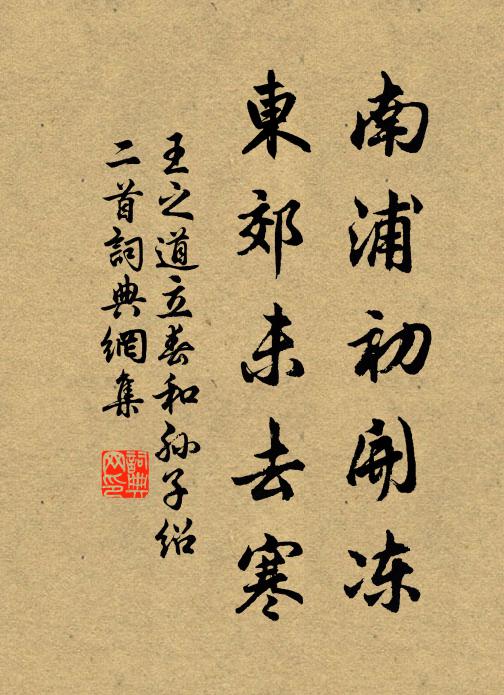 南浦初開冻
東郊未去寒
王之道立春和孙子绍
二首詞典網集
詞典网印